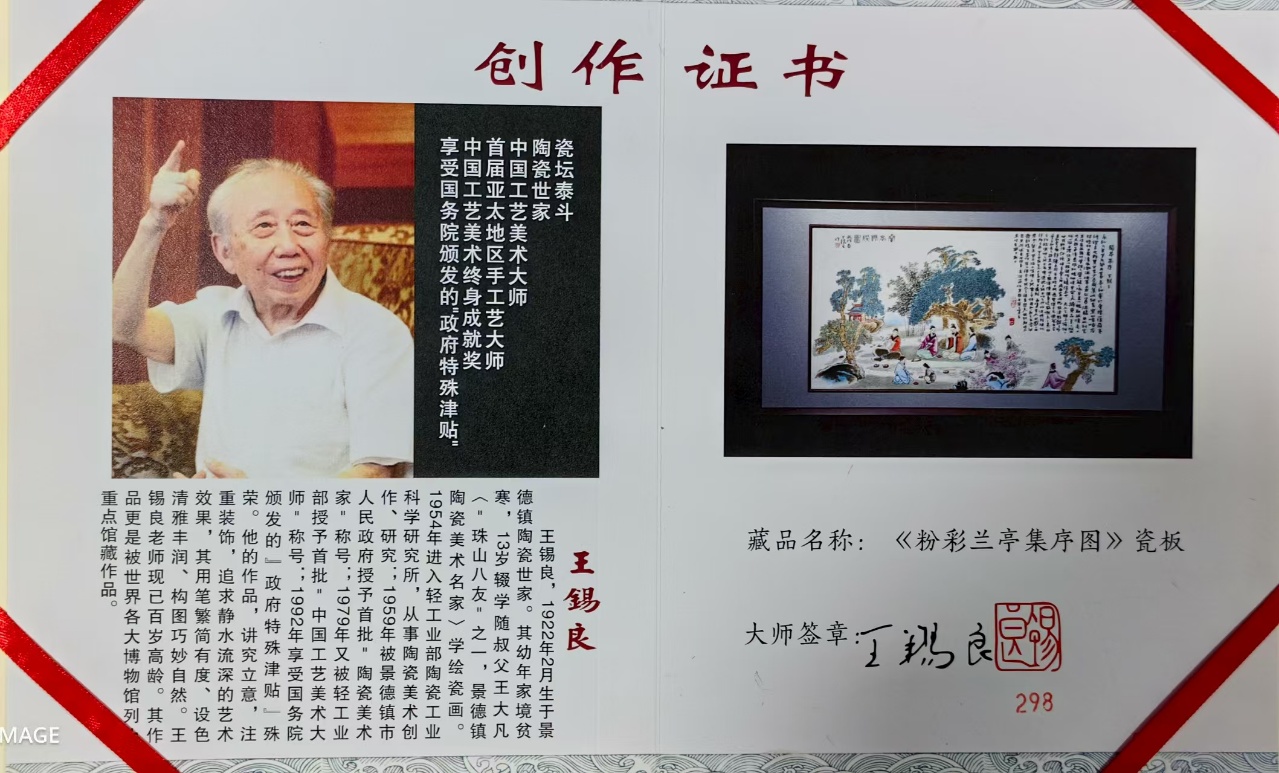 创作证书
瓷坛泰斗
陶瓷世家
中国工艺美术大师
首届亚太地区手工艺大师
中国工艺美术终身成就奖
享受国务院颁发的"政府特殊津贴"
王錫良
王锡良，1922年2月生于景
德镇陶瓷世家。其幼年家境贫
寒，13岁辍学随叔父王大凡
〈"珠山八友"之一，景德镇
陶瓷美术名家〉学绘瓷画。
1954年进入轻工业部陶瓷工业
科学研究所，从事陶瓷美术创
作、研究；1959年被景德镇市
人民政府授予首批"陶瓷美术
家"称号；1979年又被轻工业
部授予首批"中国工艺美术大
师"称号；1992年享受国务院
颁发的『政府特殊津贴』殊
荣。他的作品，讲究立意，注
重装饰，追求静水流深的艺术
效果，其用笔繁简有度、设色
清雅丰润、构图巧妙自然。王
锡良老师现已百岁高龄。其作
品更是被世界各大博物馆列
重点馆藏作品。
藏品名称：《粉彩兰亭集序图》瓷板
大师签章：王锡良
298
MAGE